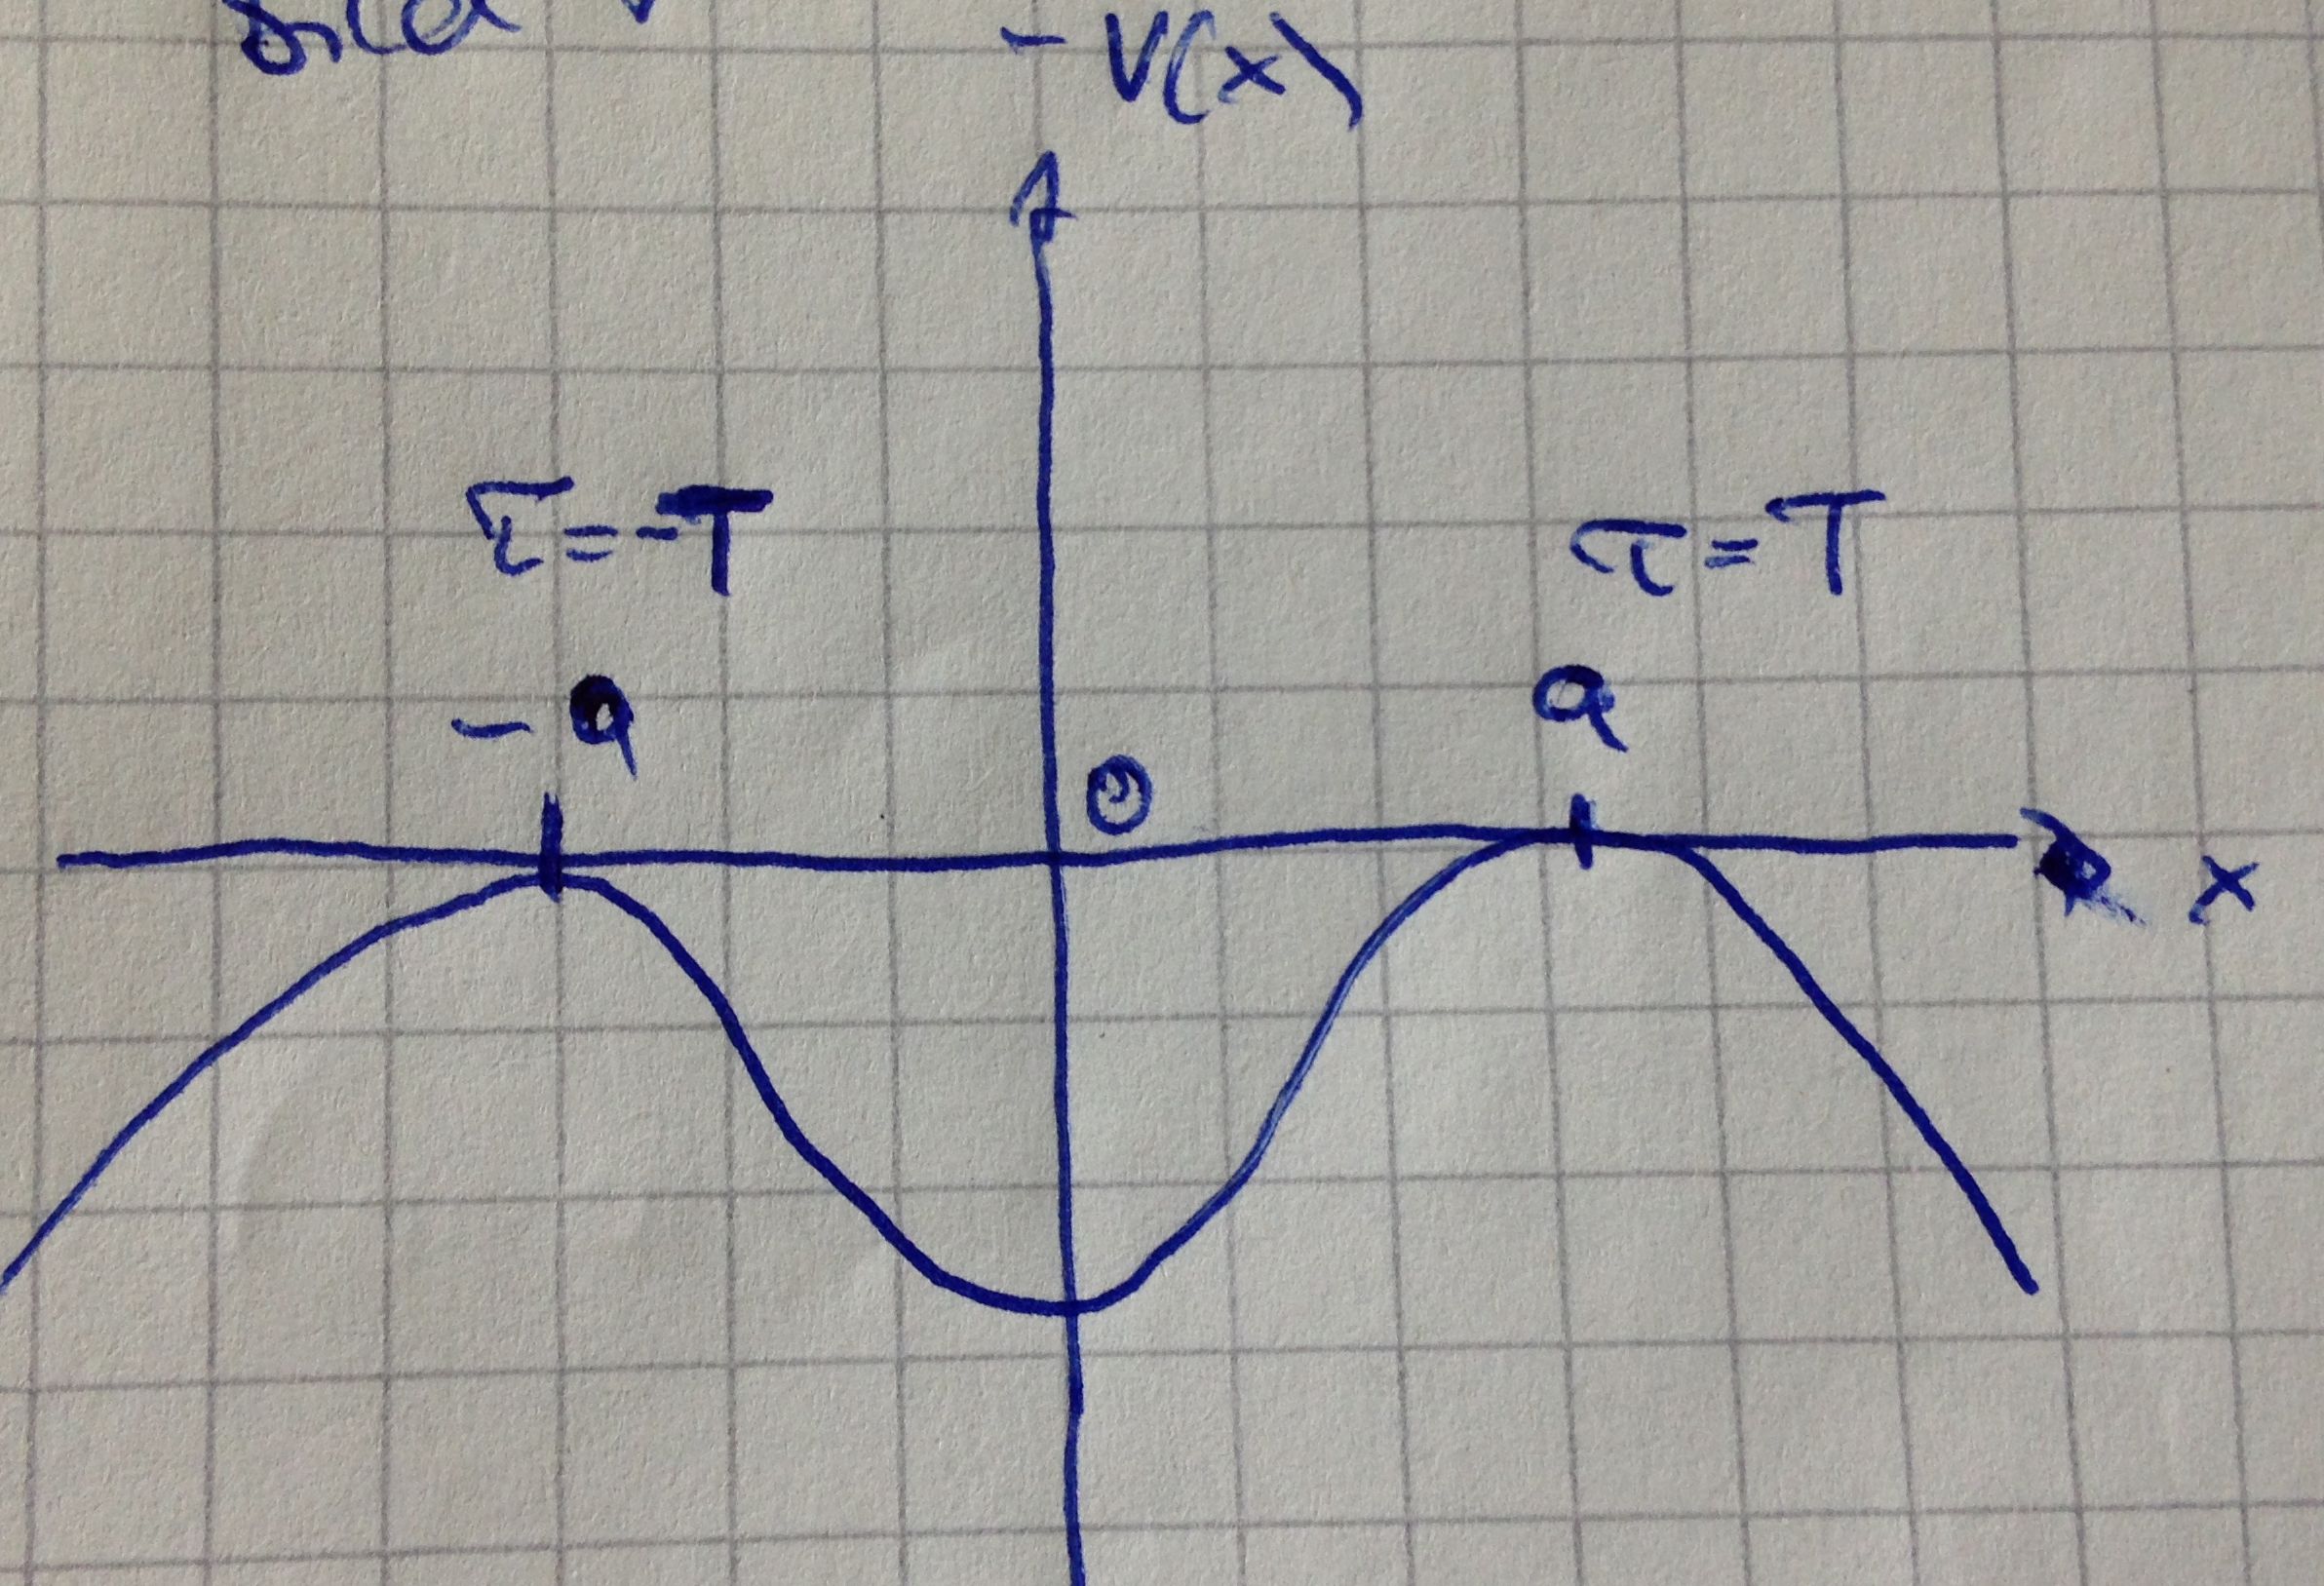 - V(x)
τ=-T τ=T
-a a
0
x